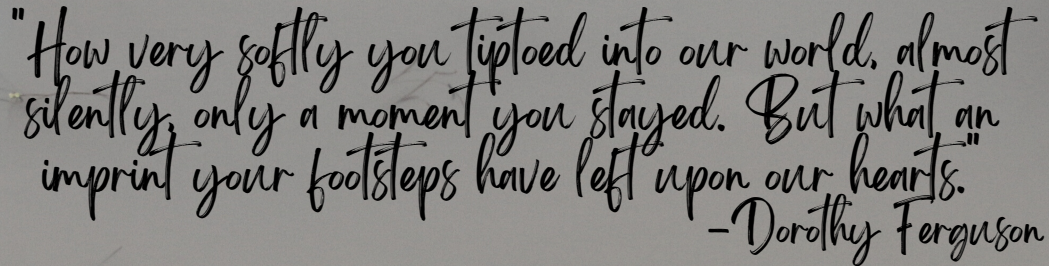 "How very softly you tiptoed into our world, almost
silently, only a moment you stayed. But what an
imprint your footsteps have left upon our hearts."
-Dorothy Ferguson